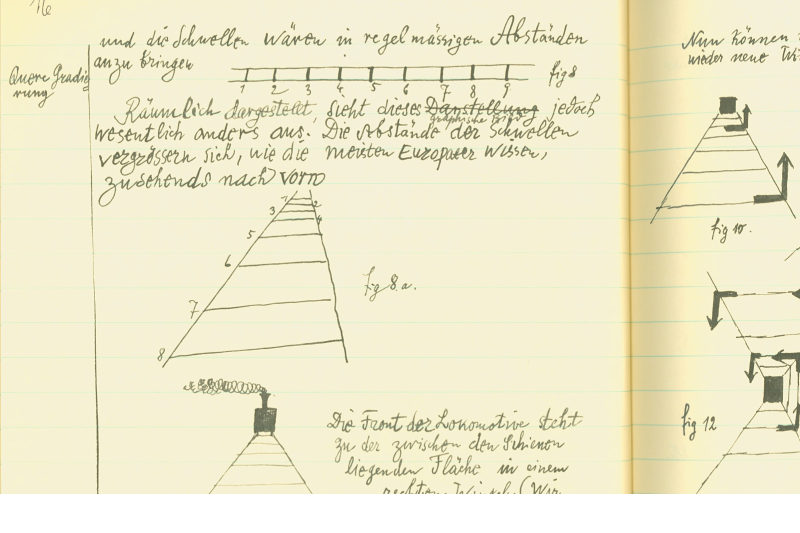 und die Schwellen wären in regelmässigen Abständen
anzu bringen
Quere Gradie
rung
1 2 3 4 5 6 7 8 9
fig 8
Räumlich dargestellt, sieht dieses Darstellung jedoch
graphische
wesentlich anders aus. Die Abstände der Schwellen
vergrössern sich, wie die meisten Europäer wissen,
zusehends nach vorn
1
2
3
4
5
6
7
8
fig 8.a.
Die Front der Lokomotive steht
zu der zwischen den Schienen
liegenden Fläche in einem
rechten Winkel (Wir
Nun können
wieder neue Wi
fig 10.
fig 12